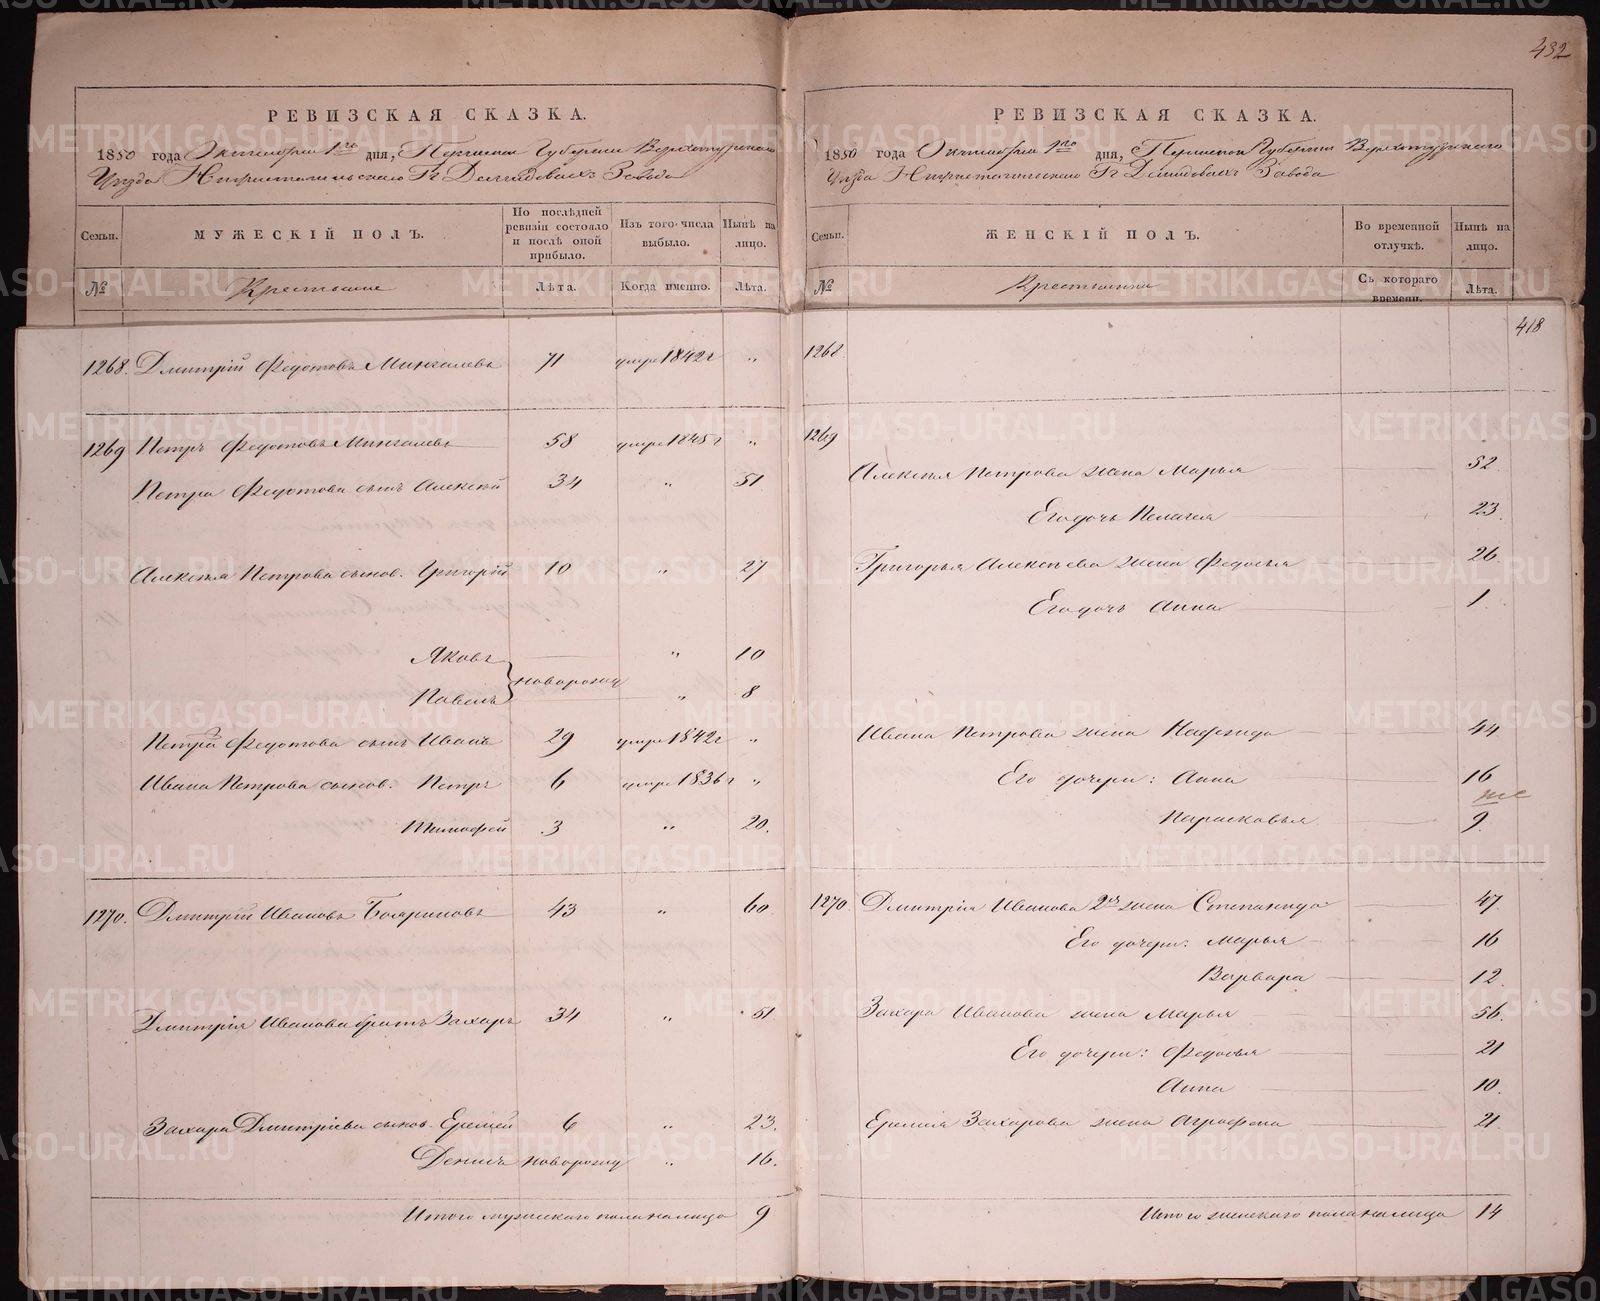 432
РЕВИЗСКАЯ СКАЗКА.
1850 года Октября 1го дня, Пермской Губернии Верхотурского
Уезда Нижнетагильского Гг Демидовыхъ Завода
Семьи.
МУЖЕСКІЙ ПОЛЪ.
По послѣдней ревизіи состояло и послѣ оной прибыло.
Изъ того-числа выбыло.
Нынѣ на лицо.
№
Крестьяне
Лѣта.
Когда именно.
Лѣта.
1268. Дмитрій Федотовъ 71 умре 1842 г "
1269 Петръ Федотовъ 58 умре 1845 г "
Петра Федотова сынъ Алексей 34 " 51
Алексея Петрова сынов. Григорій 10 " 27
Яковъ " 10
новорожд
Павелъ " 8
Петра Федотова сынъ Иванъ 29 умре 1842 г "
Ивана Петрова сынов. Петръ 6 умре 1836 г "
Тимофей 3 " 20.
1270. Дмитрій Ивановъ Бояриновъ 43 " 60
Дмитрія Иванова братъ Захаръ 34 " 51
Захара Дмитріева сынов. Еремей 6 " 23.
Денисъ новорожд " 16.
Итого мужескаго пола налицо 9
РЕВИЗСКАЯ СКАЗКА.
1850 года Октября 1го дня, Пермской Губернии Верхотурского
Уезда Нижнетагильского Гг Демидовыхъ Завода
Семьи.
ЖЕНСКІЙ ПОЛЪ.
Во временной отлучкѣ.
Нынѣ на лицо.
№
Крестьянки
Съ котораго времени.
Лѣта.
418
1268.
1269
Алексея Петрова жена Марья 52.
Его дочь Пелагея 23.
Григорья Алексеева жена Федосья 26.
Его дочь Анна 1.
Ивана Петрова жена 44
Его дочери: Анна 16
Парасковья 9.
1270 Дмитрія Иванова 2я жена Степанида 47.
Его дочери: Марья 16
Варвара 12.
Захара Иванова жена Марья 56.
Его дочери: Федосья 21
Анна 10.
Еремея Захарова жена Аграфена 21.
Итого женскаго пола налицо 14
METRIKI.GASO-URAL.RU